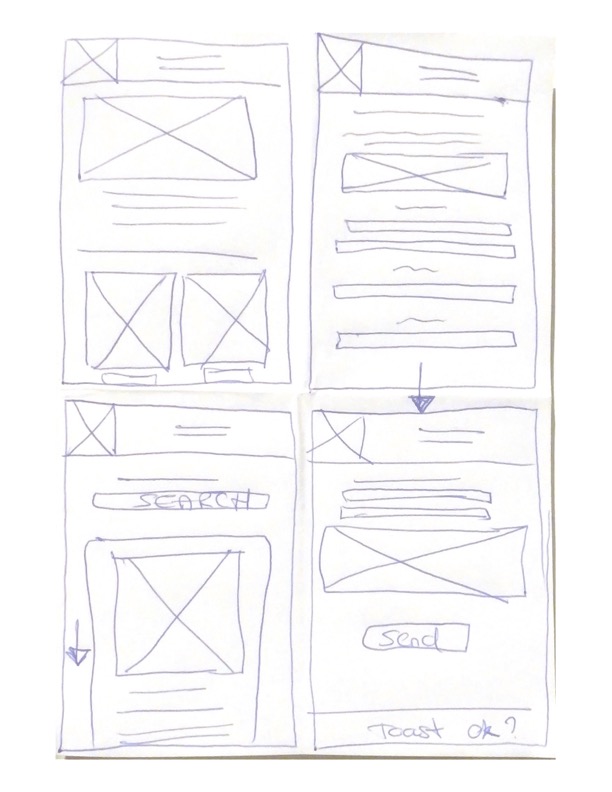 SEARCH
Send
Toast ok?